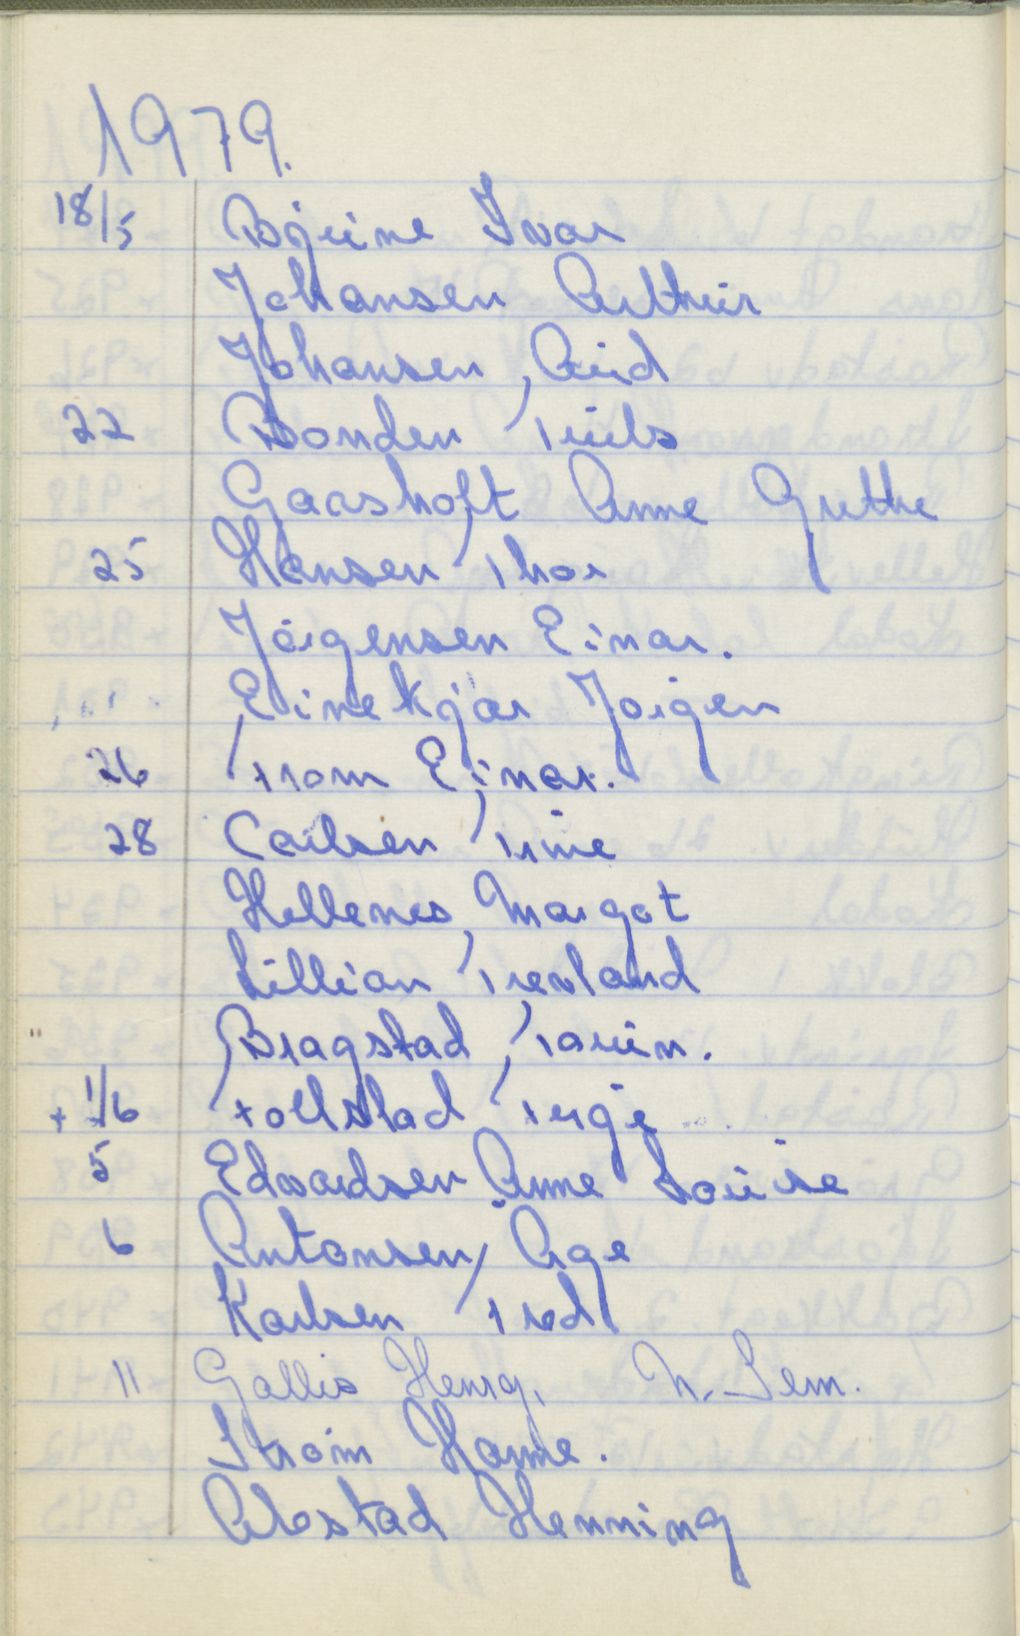 1979.
18/5 Bjerine Ivar
Johansen Arthur
Johansen Aud
22 Bonden Truls
Garshoft Anne Grethe
25 Hansen Thor
Jørgensen Einar.
Einekjær Jørgen
26 From Einar.
28 Carlsen Trine
Hellenes Margot
Lillian Trevland
Bragstad Torunn.
+ 1/6 Follstad Terje
5 Edvardsen Anne Louise
6 Antonsen Åge
Karlsen Fred
11 Gallis Henry. N. Sem.
Strøm Hanne.
Abestad Henning